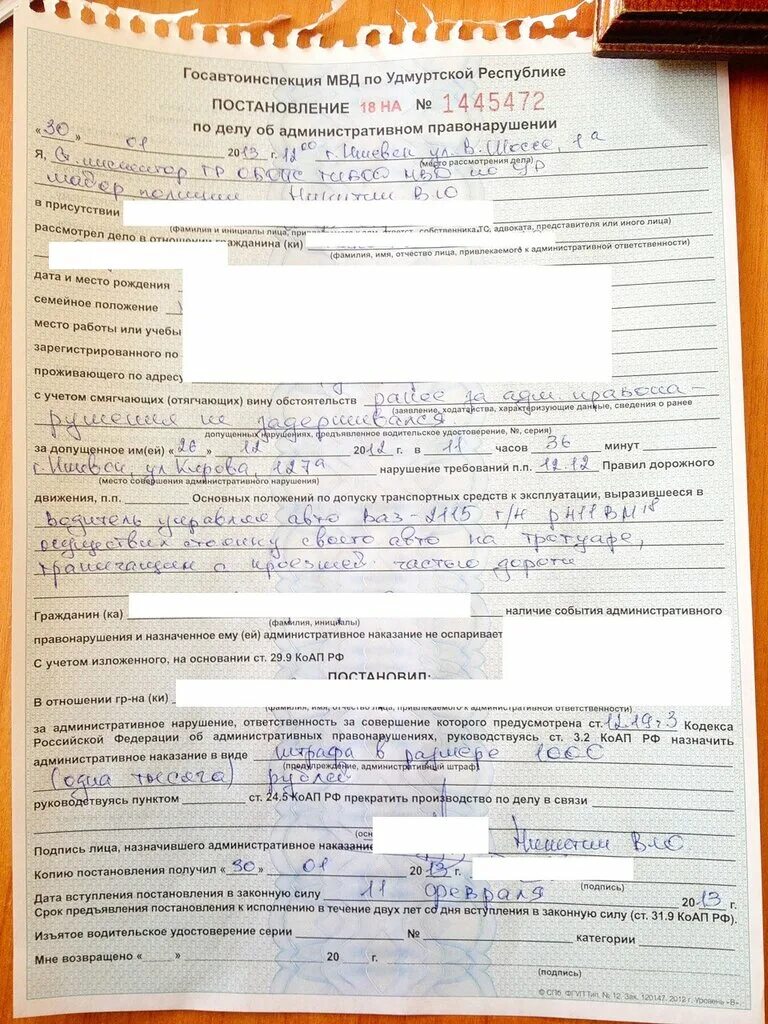 Госавтоинспекция МВД по Удмуртской Республике
ПОСТАНОВЛЕНИЕ 18 НА № 1445472
по делу об административном правонарушении
«30» 01 2013 г. 12 00 г. Ижевск ул. В. Шоссе, 1а
(место рассмотрения дела)
Я, Ст. инспектор
майор полиции Никитин В.Ю
в присутствии
(фамилия и инициалы лица, собственника ТС, адвоката, представителя или иного лица)
рассмотрел дело в отношении гражданина (ки)
(фамилия, имя, отчество лица, привлекаемого к административной ответственности)
дата и место рождения
семейное положение
место работы или учебы
зарегистрированного по
проживающего по адресу
с учетом смягчающих (отягчающих) вину обстоятельств ранее за адм. правона-
(заявление, ходатайства, характеризующие данные, сведения о ранее
рушения не задерживался
допущенных нарушениях, предъявленное водительское удостоверение, № серия)
за допущенное им(ей) «26» 12 2012 г. в 11 часов 36 минут
г. Ижевск, ул Кирова, 127а нарушение требований п.п. 12.12 Правил дорожного
(место совершения административного нарушения)
движения, п.п. Основных положений по допуску транспортных средств к эксплуатации, выразившееся в
водитель управляя авто Ваз-2115 г/н р411ВМ18
осуществил стоянку своего авто на тротуаре,
граничащим с проезжей частью дороги
Гражданин (ка) наличие события административного
(фамилия, инициалы)
правонарушения и назначенное ему (ей) административное наказание не оспаривает
С учетом изложенного, на основании ст. 29.9 КоАП РФ
ПОСТАНОВИЛ:
В отношении гр-на (ки)
(фамилия, имя, отчество лица, привлекаемого к административной ответственности)
за административное нарушение, ответственность за совершение которого предусмотрена ст. 12.19ч3 Кодекса
Российской Федерации об административных правонарушениях, руководствуясь ст. 3.2 КоАП РФ назначить
административное наказание в виде штрафа в размере 1000
(предупреждение, административный штраф)
(одна тысяча) рублей
руководствуясь пунктом ст. 24.5 КоАП РФ прекратить производство по делу в связи
(осн
Подпись лица, назначившего административное наказание Никитин В.Ю.
Копию постановления получил «30» 01 2013 г.
(подпись)
Дата вступления постановления в законную силу 11 февраля 2013 г.
Срок предъявления постановления к исполнению в течение двух лет со дня вступления в законную силу (ст. 31.9 КоАП РФ).
Изъятое водительское удостоверение серии № категории
Мне возвращено « » 20 г.
(подпись)
© СПб. ФГУП Тип. № 12. Зак. 120147. 2012 г. Уровень «В»